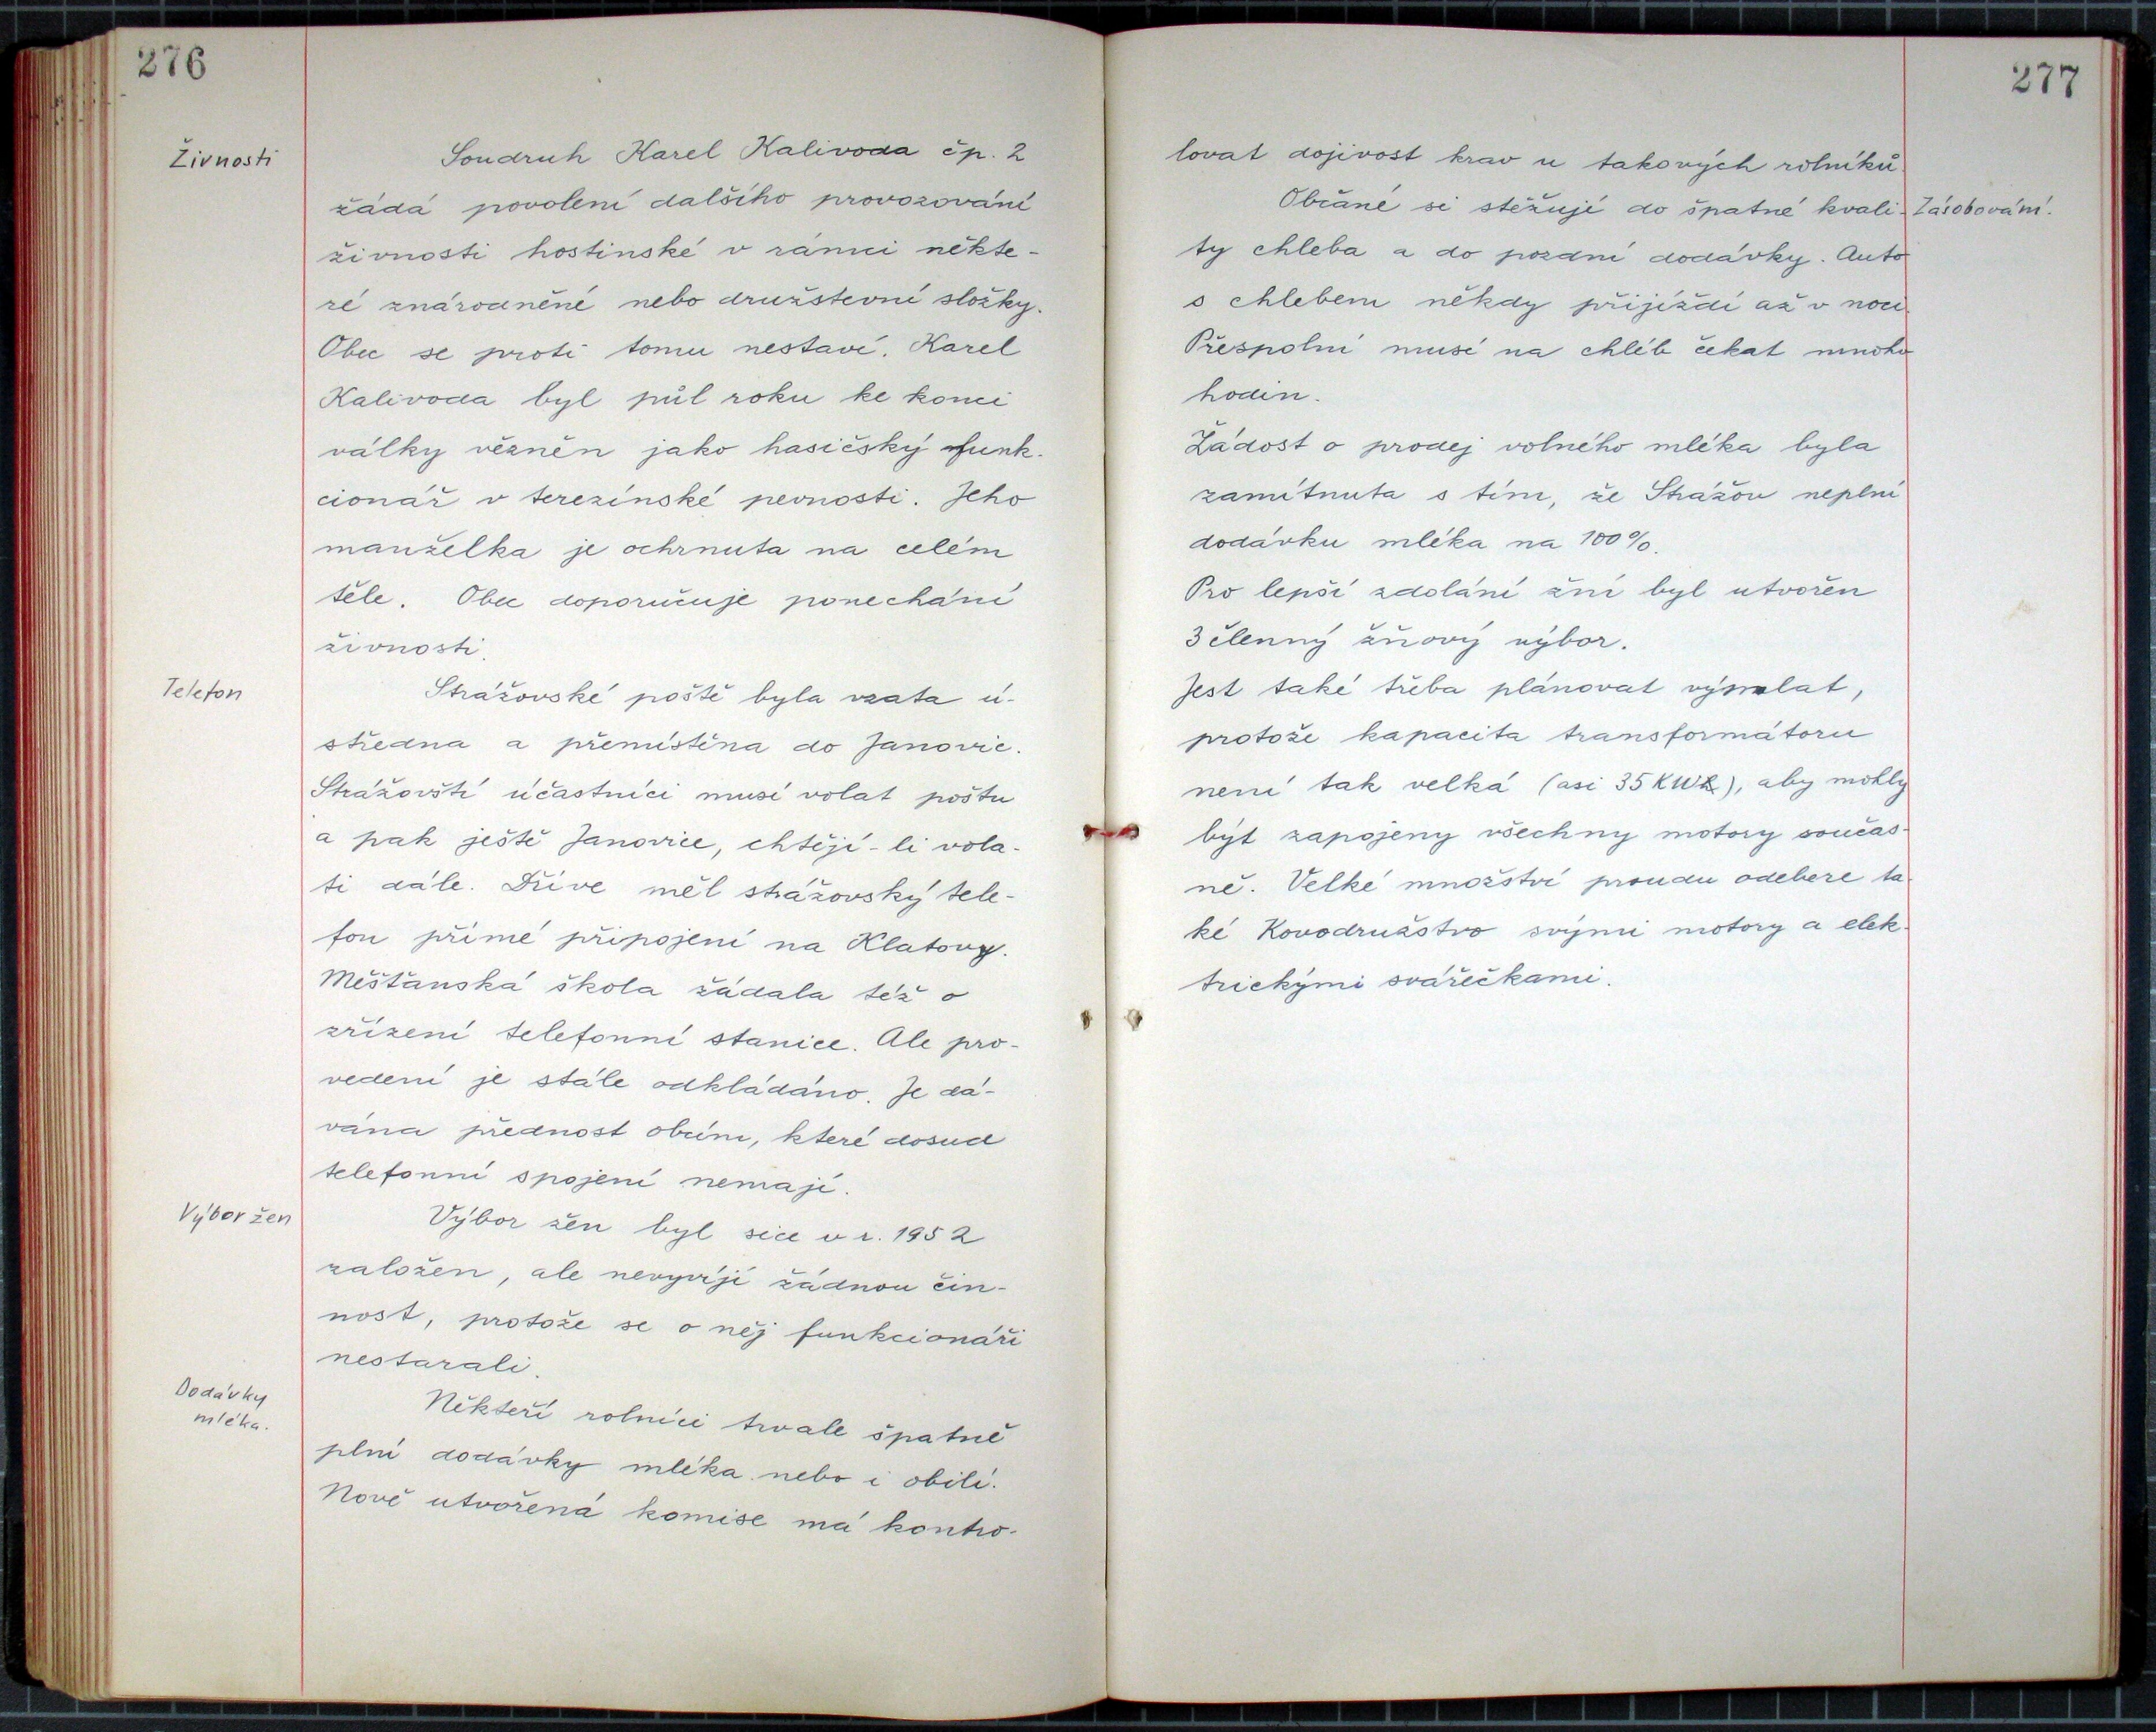 276
Živnosti
Soudruh Karel Kalivoda čp. 2
žádá povolení dalšího provozování
živnosti hostinské v rámci někte-
ré znárodněné nebo družstevní složky.
Obec se proti tomu nestaví. Karel
Kalivoda byl půl roku ke konci
války vězněn jako hasičský funk-
cionář v terezínské pevnosti. Jeho
manželka je ochrnuta na celém
těle. Obec doporučuje ponechání
živnosti.
Telefon
Strážovské poště byla vzata ú-
středna a přemístěna do Janovic.
Strážovští účastníci musí volat poštu
a pak ještě Janovice, chtějí-li vola-
ti dále. Dříve měl strážovský tele-
fon přímé připojení na Klatovy.
Měšťanská škola žádala též o
zřízení telefonní stanice. Ale pro-
vedení je stále odkládáno. Je dá-
vána přednost obcím, které dosud
telefonní spojení nemají.
Výbor žen
Výbor žen byl sice v r. 1952
založen, ale nevyvíjí žádnou čin-
nost, protože se o něj funkcionáři
nestarali.
Dodávky
mléka.
Někteří rolníci trvale špatně
plní dodávky mléka nebo i obilí.
Nově utvořená komise má kontro-
277
lovat dojivost krav u takových rolníků.
Zásobování.
Občané si stěžují do špatné kvali-
ty chleba a do pozdní dodávky. Auto
s chlebem někdy přijíždí až v noci.
Přespolní musí na chléb čekat mnoho
hodin.
Žádost o prodej volného mléka byla
zamítnuta s tím, že Strážov neplní
dodávku mléka na 100%.
Pro lepší zdolání žní byl utvořen
3 členný žňový výbor.
Jest také třeba plánovat výmlat,
protože kapacita transformátoru
není tak velká (asi 35 KW), aby mohly
být zapojeny všechny motory součas-
ně. Velké množství proudu odebere ta-
ké Kovodružstvo svými motory a elek-
trickými svářečkami.